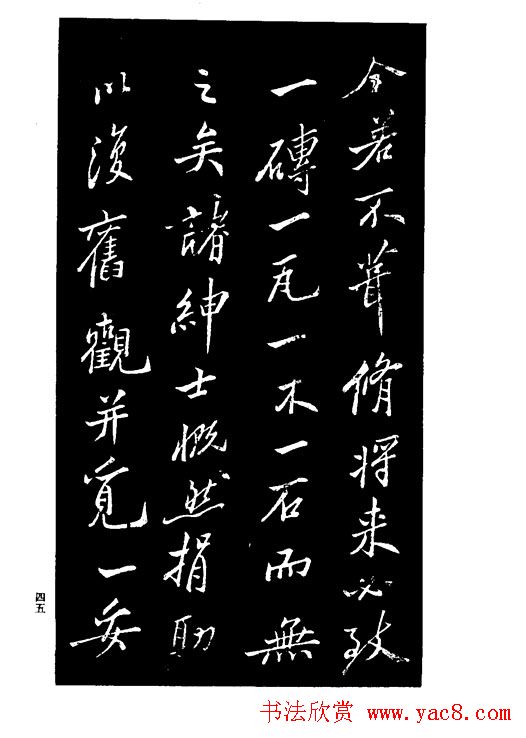 今若不葺脩将来必致
一磚一瓦一木一石而無
之矣諸紳士慨然捐助
以復舊觀并覓一妥
四五
书法欣赏 www.yac8.com